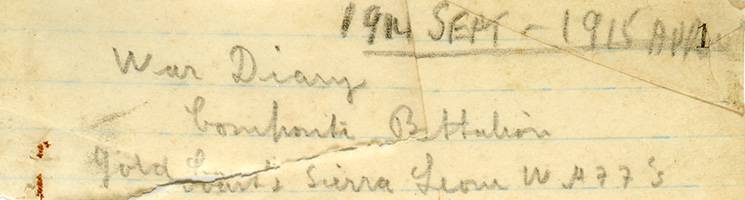 1914 SEPT - 1915 APR 1
War Diary
Composite Battalion
Gold Coast & Sierra Leone W A F F's